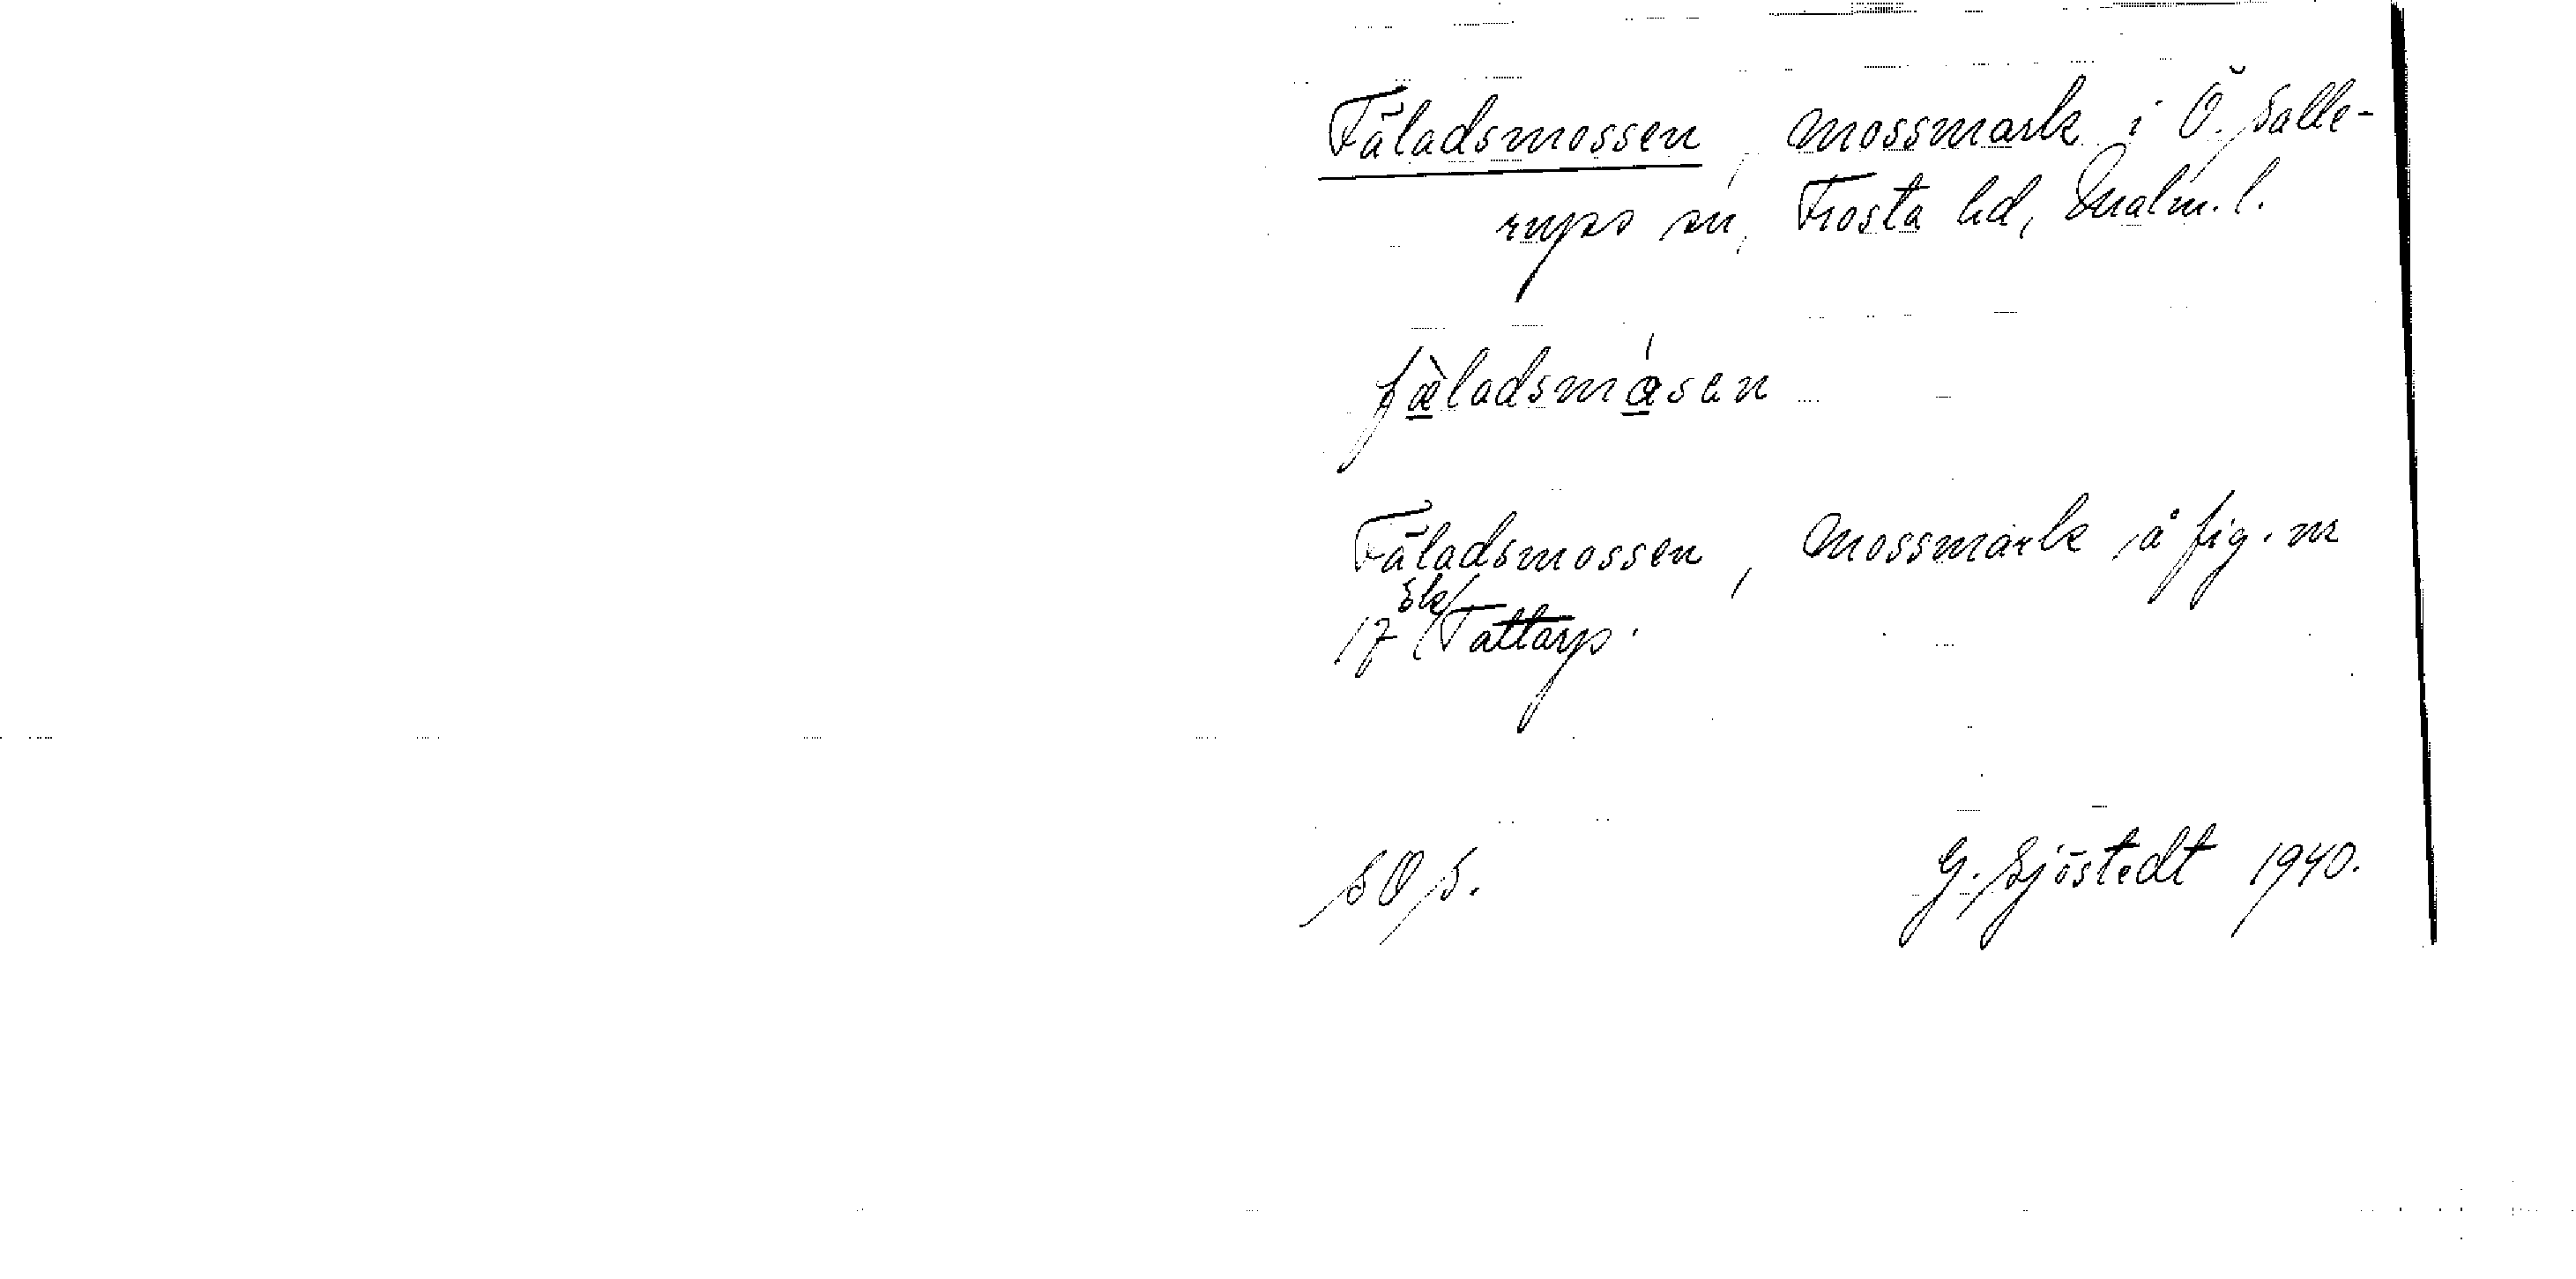 Fäladsmossen, mossmark i Ö. Salle-
rups sn, Frosta hd, Malm. l.
fæ̀ladsmåsen
Fäladsmossen, mossmark å fig. nr
17 sk/ Tattarp.
SOS. G. Sjöstedt 1940.